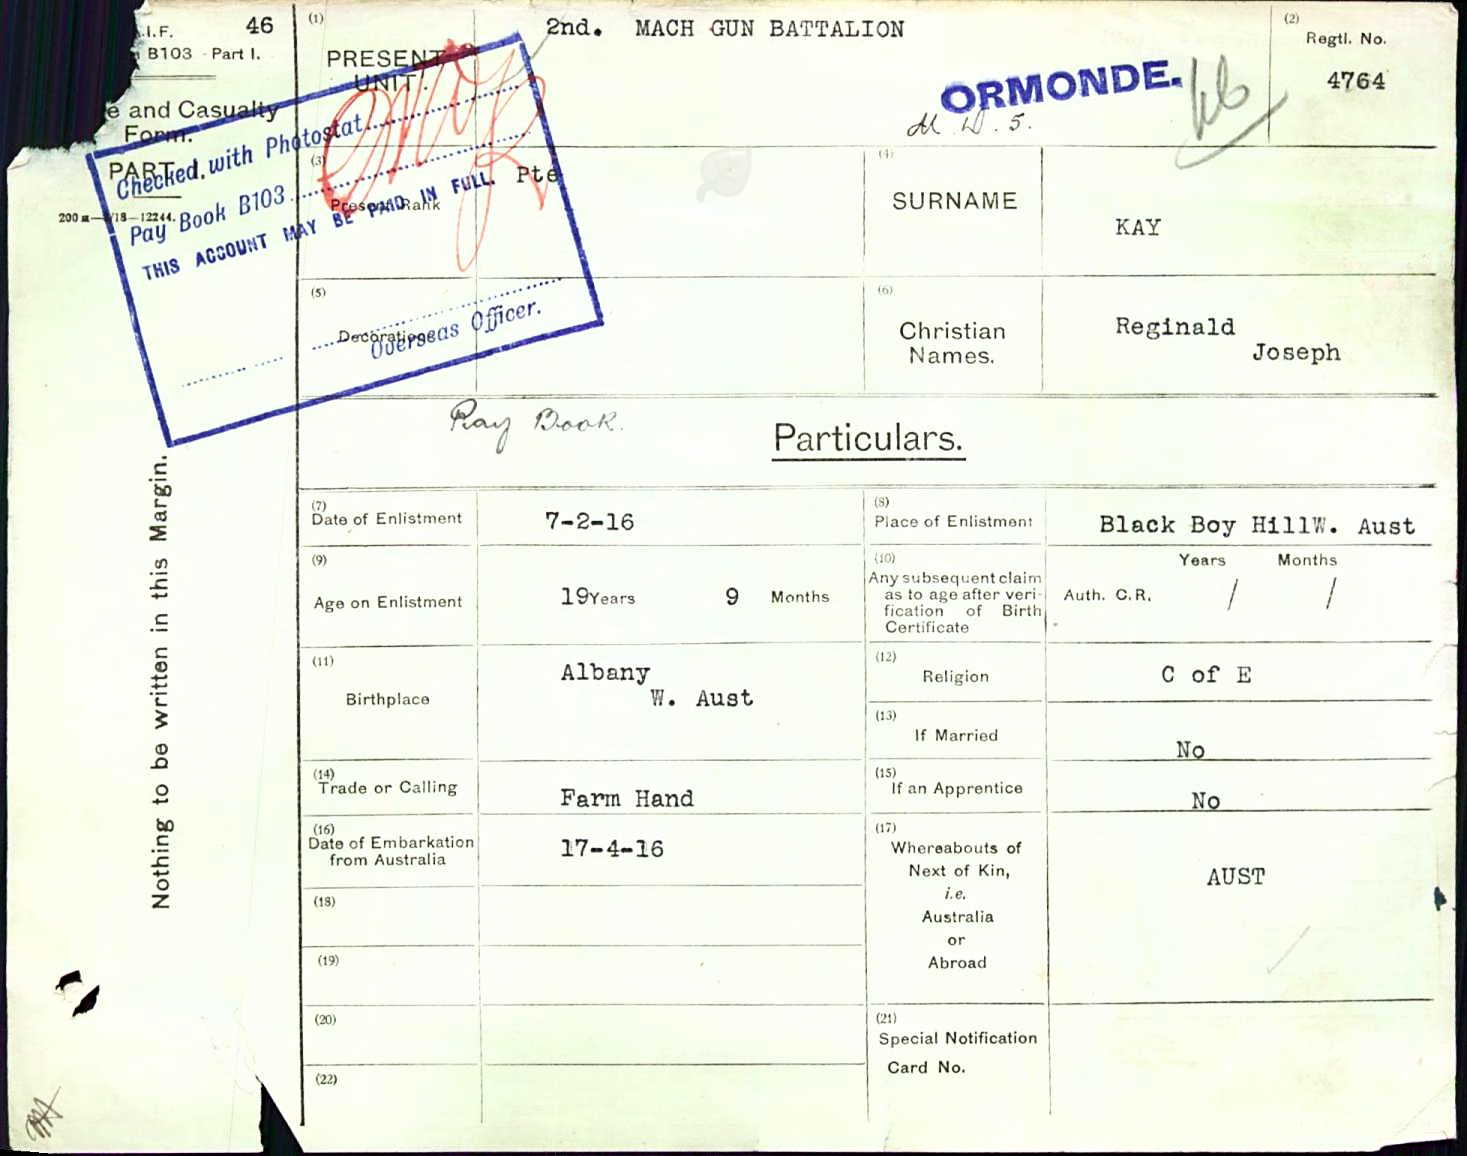 .I.F. 46
B103 - Part I.
e and Casualty
Form.
PART I.
200 m—8/18—12244.
Checked with Photostat
Pay Book B103
THIS ACCOUNT MAY BE PAID IN FULL.
Overseas Officer.
Nothing to be written in this Margin.
(1)
PRESENT UNIT.
2nd. MACH GUN BATTALION
ORMONDE.
M.D.5.
(2)
Regtl. No.
4764
(3)
Present Rank
Pte
(4)
SURNAME
KAY
(5)
Decorations
(6)
Christian
Names.
Reginald
Joseph
Pay Book.
Particulars.
(7)
Date of Enlistment
7-2-16
(8)
Place of Enlistment
Black Boy HillW. Aust
(9)
Age on Enlistment
19Years 9 Months
(10)
Any subsequent claim
as to age after veri-
fication of Birth
Certificate
Years Months
Auth. C.R. / /
(11)
Birthplace
Albany
W. Aust
(12)
Religion
C of E
(13)
If Married
No
(14)
Trade or Calling
Farm Hand
(15)
If an Apprentice
No
(16)
Date of Embarkation
from Australia
17-4-16
(17)
Whereabouts of
Next of Kin,
i.e.
Australia
or
Abroad
AUST
(18)
(19)
(20)
(21)
Special Notification
Card No.
(22)